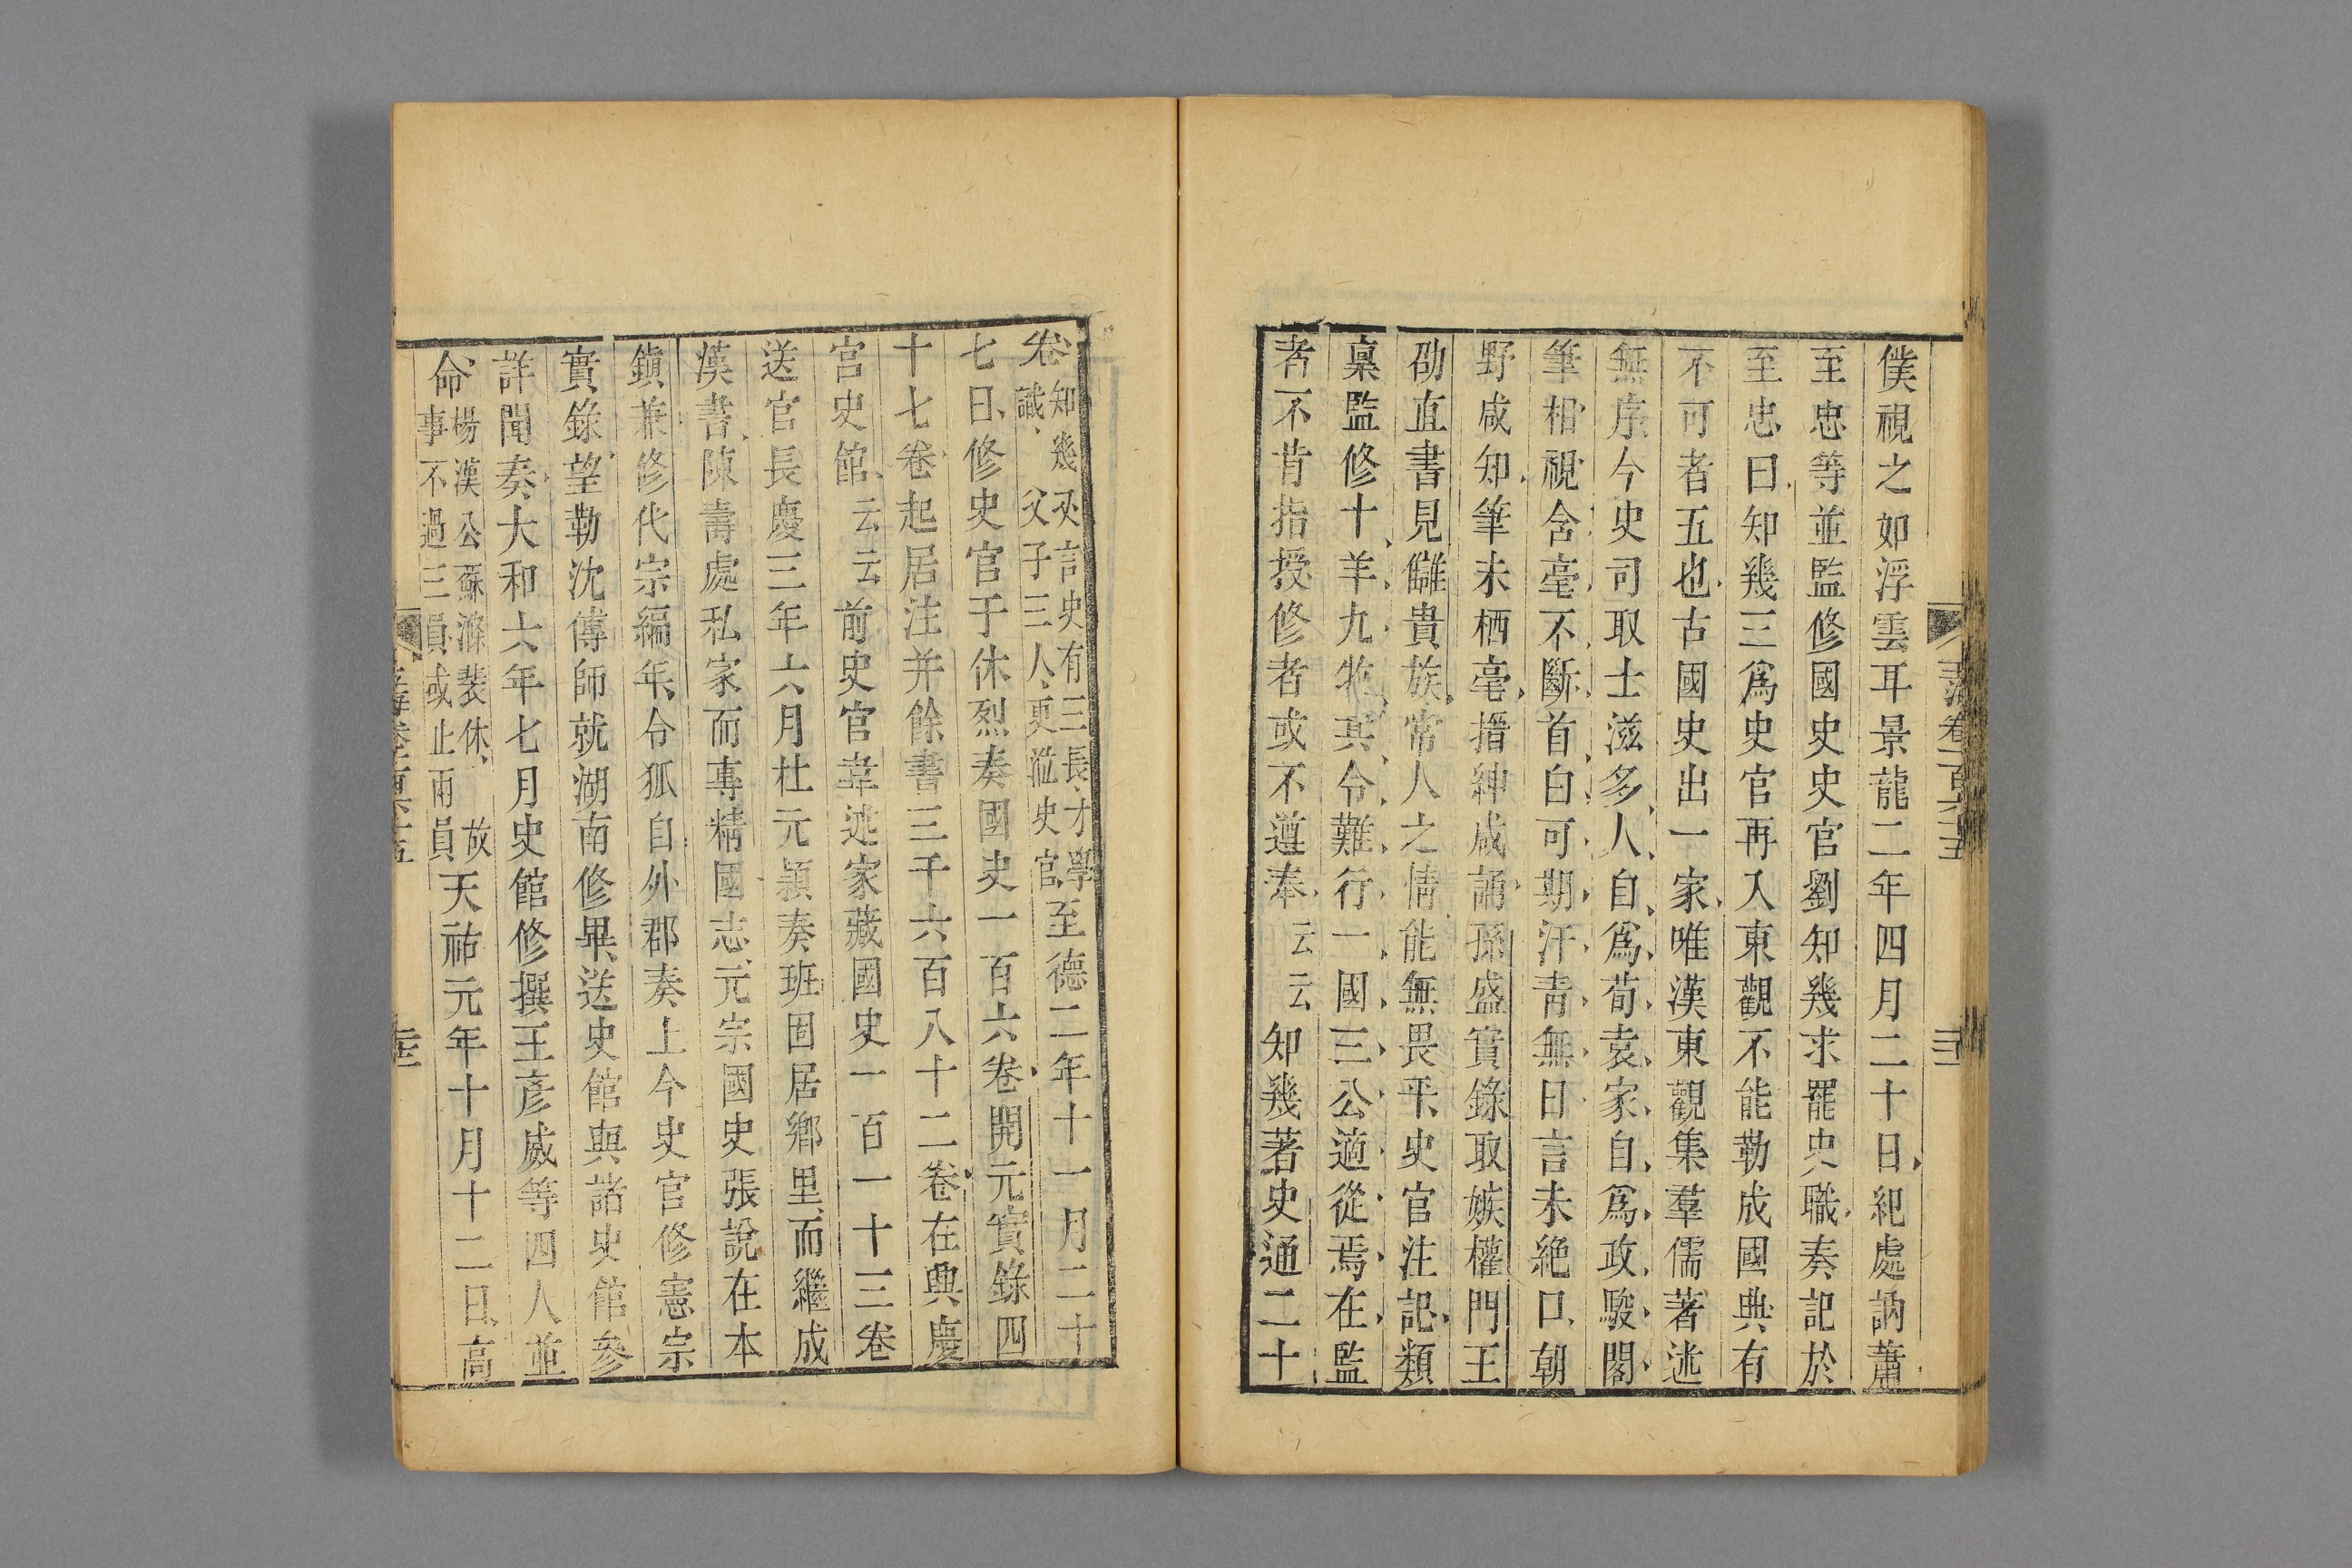 僕視之如浮雲耳景龍二年四月二十日、紀處訥蕭
至忠等並監修國史史官劉知幾求罷史職、奏記於
至忠曰、知幾三爲史官再入東觀不能勒成國典有
不可者五也、古國史出一家、唯漢東觀集羣儒著述
無序今史司取士滋多、人自爲荀袁家自爲政駿閣
筆相視含毫不斷首白可期汗青無日言未絕口、朝
野咸知、筆未栖毫、搢紳咸誦孫盛實錄取嫉權門王
劭直書見讎貴族、常人之情能無畏乎、史官注記、類
稟監修十羊九牧其令難行一國三公適從焉在監
者不肯指授修者或不遵奉云云知幾著史通二十
卷知幾又言史有三長、才學
識、父子三人、更涖史官、至德二年十一月二十
七日、修史官于休烈奏國史一百六卷、開元實錄四
十七卷起居注并餘書三千六百八十二卷、在興慶
宮史館、云云前史官韋述家藏國史一百一十三卷
送官長慶三年六月杜元穎奏班固居鄉里、而繼成
漢書、陳壽處私家而專精國志、元宗國史張說在本
鎮兼修代宗編年、令狐自外郡奏上今史官修憲宗
實錄望勒沈傳師就湖南修畢、送史館與諸史館參
詳聞奏、大和六年七月史館修撰王彥威等四人並
命、楊漢公蘇滌裴休、故
事不過三員或止兩員天祐元年十月十二日、高